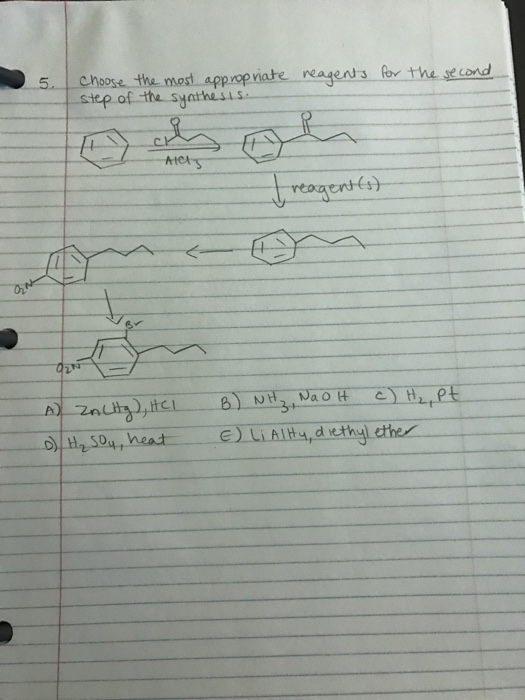 5. Choose the most appropriate reagents for the second
step of the synthesis.
Cl O O
AlCl3
reagent(s)
O2N
Br
O2N
A) Zn(Hg), HCl B) NH3, NaOH C) H2, Pt
D) H2SO4, heat E) LiAlH4, diethyl ether